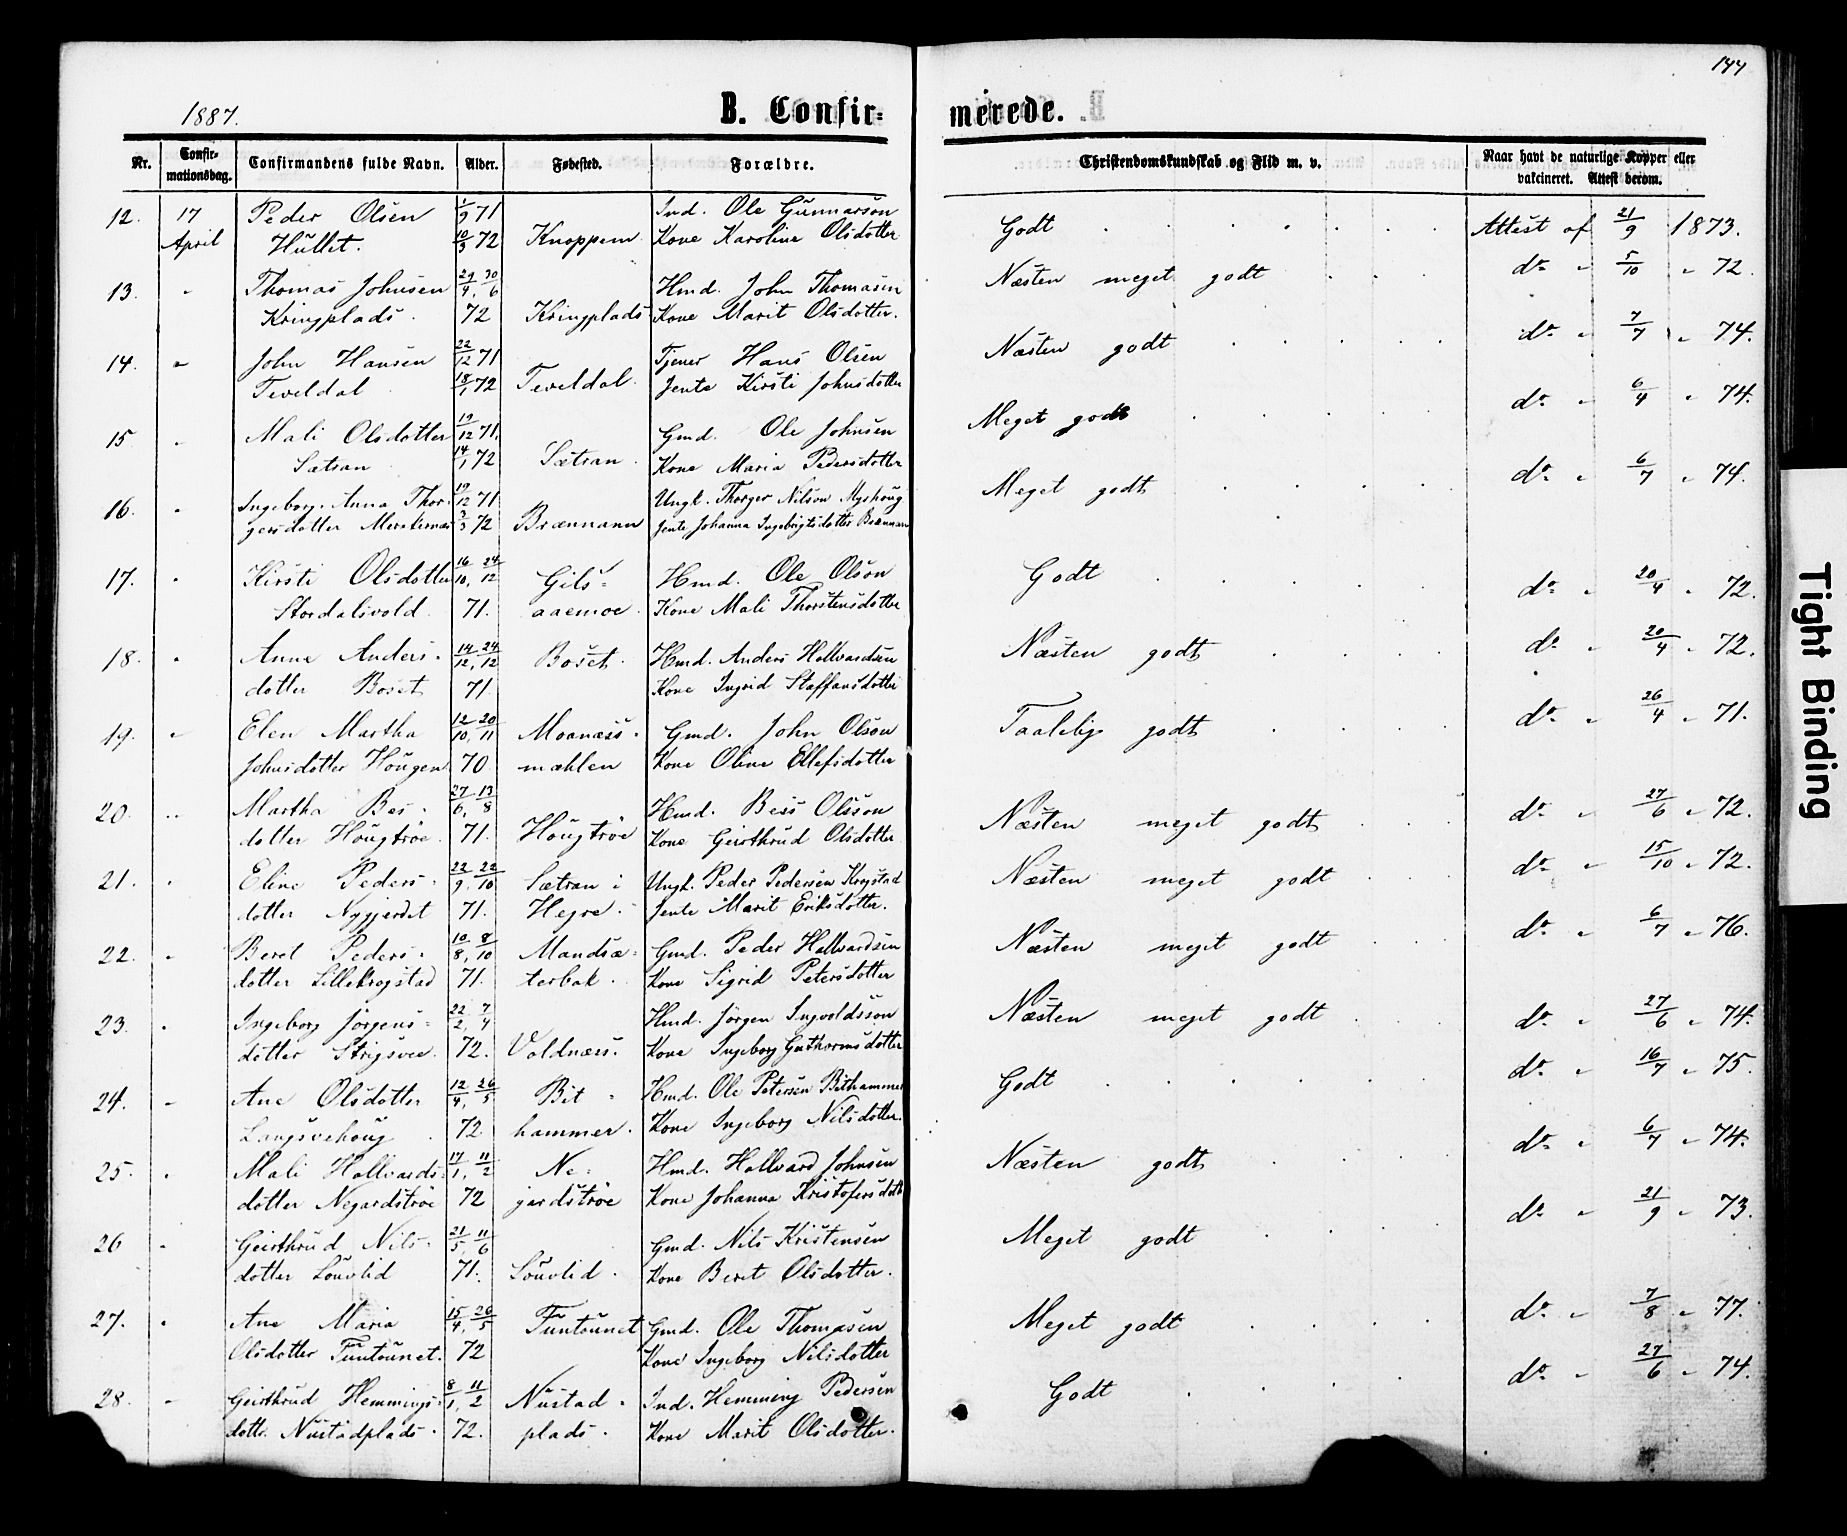 144
1887.
B. Confir- merede.
Nr. Confir-mationsdag. Confirmandens fulde Navn. Alder. Fødested. Forældre. Christendomskundskab og Flid m. v. Naar havt de naturlige Kopper eller vakcineret. Attest derom.
12. 17 Peder Olsen 1/9 71 Ind. Ole Gunnarson Godt Attest af 21/9 1873.
April Hullet. 10/3 72 Knoppem Kone Karoline Olsdotter
13. " Thomas Johnsen 29/4, 30/6 Hmd. John Thomasen Næsten meget godt do " 5/10 " 72.
Kringplads. 72 Kringplads Kone Marit Olsdotter.
14. " John Hansen 22/12 71 Tjener Hans Olsen Næsten godt do " 7/7 " 74.
Teveldal 18/1 72 Teveldal. Jente Kirsti Johnsdotter
15. " Mali Olsdotter 19/12 71. Gmd. Ole Johnsen Meget godt do " 6/4 " 74.
Sætran 14/1 72 Sætran. Kone Maria Pedersdotter
16. " Ingeborg Anna Thor- 19/12 71 Ungk. Thorger Nilson Myshoug Meget godt do " 6/7 " 74.
gersdotter 3/3 72 Brænnann Jente Johanna Ingebrigtsdotter Brænnann
17. " Kirsti Olsdotter 16/10, 24/12 Gils- Hmd. Ole Olson Godt do " 20/4 " 72.
Stordalsvold. 71. aaemoe. Kone Mali Thorstensdotter
18. " Anne Anders- 14/12, 24/12 Boset. Hmd. Anders Hallvardsen Næsten godt do " 20/4 " 72.
dotter Boset 71. Kone Ingrid Staffansdotter
19. " Elen Martha 12/10, 20/11 Moanæss- Gmd. John Olson Taalelig godt do " 26/4 " 71.
Johnsdotter Hougen 70 mæhlen Kone Oline Ellefsdotter
20. " Martha Bes- 27/6, 13/8 Hmd. Bess Olsson Næsten meget godt do " 27/6 " 72.
dotter Hougtrøe. 71. Hougtrøe Kone Geirthrud Olsdotter
21. " Eline Peders- 22/9, 22/10 Sætran i Ungk. Peder Pedersen Krogstad Næsten meget godt do " 15/10 " 72.
dotter Nygjerdet 71. Hegre. Jente Marit Eriksdotter.
22. " Beret Peders- 10/8, 8/10 Mandsæ- Gmd. Peder Hallvardsen Næsten meget godt do " 6/7 " 76.
dotter Lillekrogstad 71. terbak. Kone Sigrid Petersdotter
23. " Ingeborg Jørgens- 22/2, 7/4 Hmd. Jørgen Ingvoldsson Næsten meget godt do " 27/6 " 74.
dotter 72. Voldnæss. Kone Ingeborg Guthormsdotter
24. " Ane Olsdotter 12/4, 26/5 Bit- Hmd. Ole Petersen Bithammer Godt do " 16/7 " 75.
Langsvehoug 72 hammer. Kone Ingeborg Nilsdotter.
25. " Mali Hallvards- 17/1, 11/2 Ne- Hmd. Hallvard Johnsen Næsten godt do " 6/7 " 74.
dotter Negardstrøe 72 gardstrøe Kone Johanna Kristofersdott
26 " Geirthrud Nils- 21/5, 11/6 Gmd. Nils Kristensen Meget godt do " 21/9 " 73.
dotter Louvlid 71. Louvlid. Kone Beret Olsdotter.
27. " Ane Maria 15/4, 26/5 Tuntounet Gmd. Ole Thomasen Meget godt do " 7/8 " 77.
Olsdotter Tuntounet. 72 Kone Ingeborg Nilsdotter
28. " Geirthrud Hemmings- 8/1, 11/2 Nustad- Ind. Hemming Pedersen Godt do " 27/6 " 74.
dottr. Nustadplads. 72. plads. Kone Marit Olsdotter.
Tight Binding